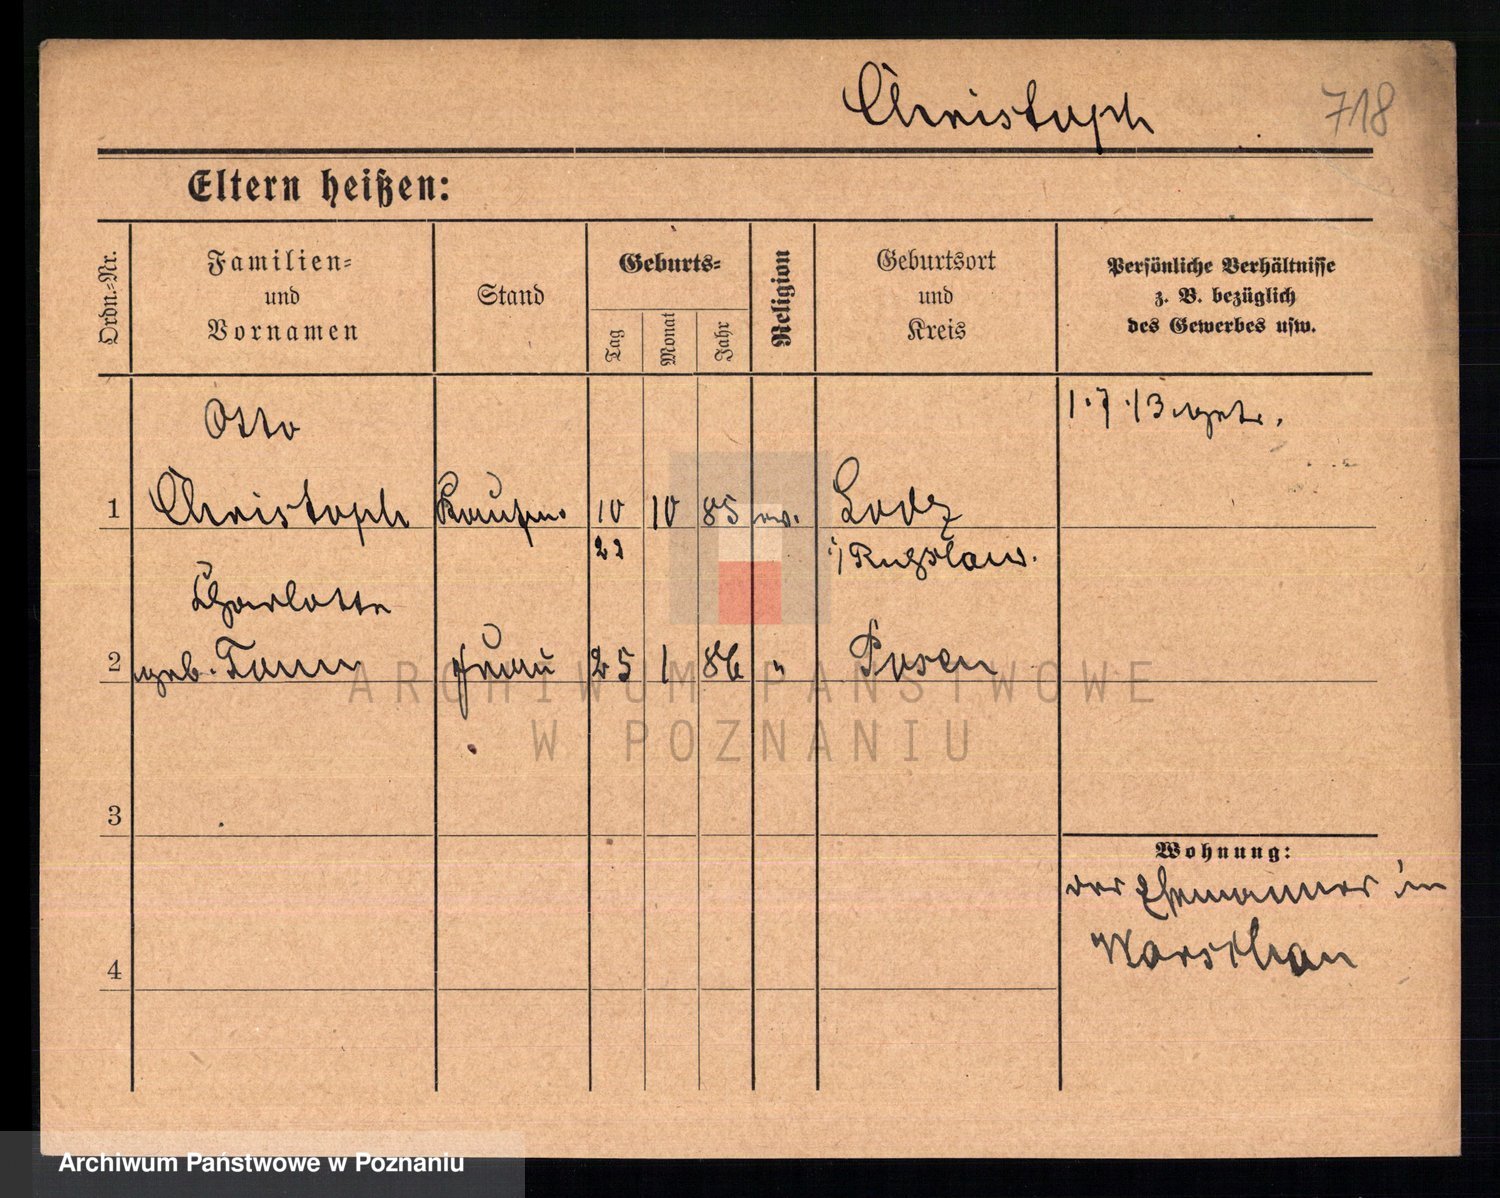 Christoph 718
Eltern heißen:
Ordn.-Nr.
Familien-
und
Vornamen
Stand
Geburts-
Tag
Monat
Jahr
Religion
Geburtsort
und
Kreis
Persönliche Verhältnisse
z. B. bezüglich
des Gewerbes usw.
Otto 1.7.13 getr.
1 Christoph Kaufm. 10 10 85 ev. Lodz
22 i/ Rußland.
Charlotte
2 geb. Tonn Frau 25 1 86 " Posen
3
Wohnung:
der Ehemann in
Warschau
4
ARCHIWUM PAŃSTWOWE
W POZNANIU
Archiwum Państwowe w Poznaniu